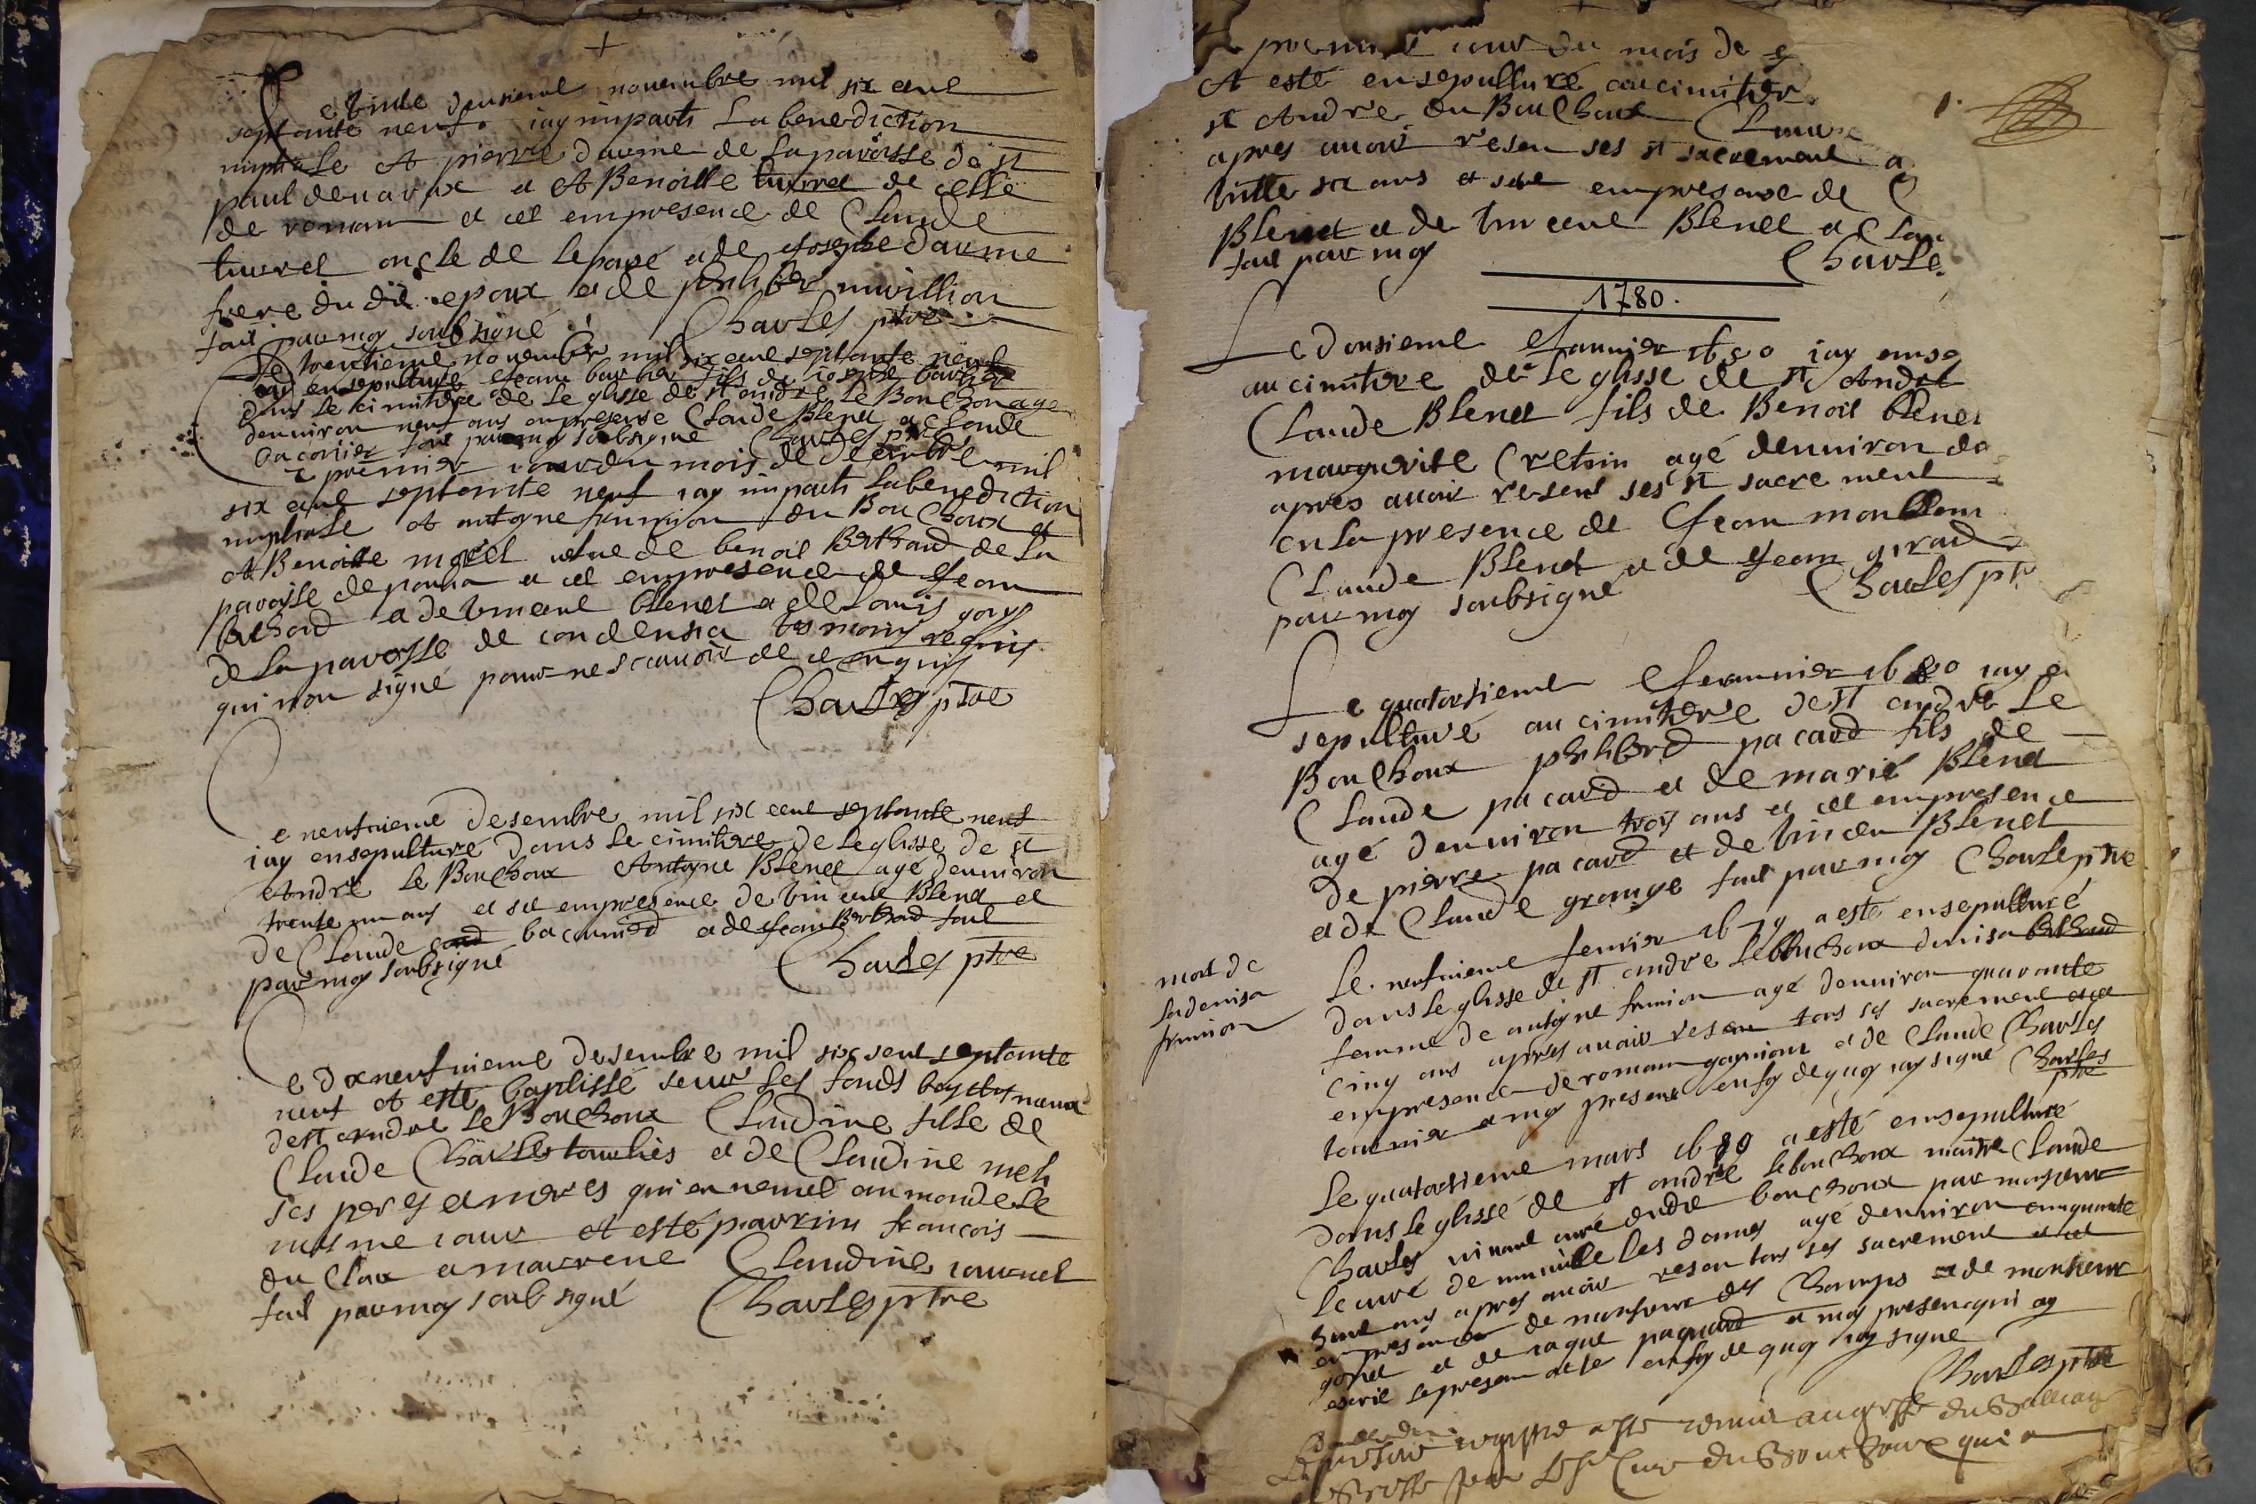 e vinte deusieme nouembre mil six cent
septante neuf iay imparti La benediction
nuptiale A pierre daume de La paroisse de st
paul de uarax et A Benoitte turrel de celle
de romain et ce empresence de Claude
turrel oncle de Lepouse et de Joseph daume
frere du dit epoux et de philiber
fait par moy soubsigné Charles ptre
Le trentieme nouembre mil six cent septante neuf
iay ensepulturé Jean barbier fils de joseph barbier
dans Le cimitere de Leglisse de st andre Le Bouchou age
denuiron neuf ans empresense Claude Blenet et Claude
fait par moy soubsigné Charles ptre
e premier iour du mois de desembre mil
six cent septante neuf iay imparti La benediction
nuptiale A antoyne frunion du Bouchoux et
A Benoitte morel uefue de benoit Berthaud de La
paroisse de et ce empresence de Jean
et de vincent blenet et de Louis goy
de La paroisse de condensia tesmoins requis
qui non signé pour ne scauoir de ce enquis
Charles ptre
e neufuieme desembre mil six cent septante neuf
iay ensepulturé dans Le cimitere de Leglisse de st
Andre Le Bouchoux Antoyne Blenet agé denuiron
trente un ans et ce empresence de vincent Blenet et
de Claude et de Jean Berthod fait
par moy soubsigné Charles ptre
e dixneufuieme desembre mil six sent septante
neuf A esté baptissé seur Les fonds baptismaux
de st andre Le Bouchoux Claudine fille de
Claude Charles et de Claudine
ses peres et meres qui en nenuet au monde Le
mesme iour A esté parrin francois
du Clou et marrene Claudine iournet
fait par moy soubsigné Charles ptre
premier iour du mois de
A esté ensepulturé au cimitier
st Andre du Bouchoux Claude
apres auoir reseu ses st sacrement
vintte six ans et ce empresance de
Blenet et de vincent Blenet et Clau
fait par moy Charle
1.
1780.
Le dousieme Januier 1680 iay ense
au cimitere de Leglisse de st Andre
Claude Blenet fils de Benoit blenet
marguerite Cretin agé denuiron do
apres auoir reseu ses st sacrement
en La presence de Jean
Claude Blenet et de Jean girad
par moy soubsigné Charles ptr
Le quatorsieme Jeanuier 1680 iay en
sepulturé au cimitiere de st andre Le
Bouchoux philiberd pacard fils de
Claude pacard et de marie Blenet
agé denuiron trois ans et ce empresence
de pierre pacard et de vincen Blenet
et de Claude grange fait par moy Charle ptre
mort de
La denisa
frunion
Le neufuieme feurier 1679 a esté ensepulturé
dans Leglisse de st andre Le bouchoux denisa berthaud
femme de antoine frunion agé denuiron quarante
cinq ans apres auoir reseu tous ses sacrement et ce
empresence de romain et de Claude Charles
tournier et moy present en foy de quoy iay signé Charles
ptre
Le quatorsieme mars 1680 a esté ensepulturé
dans Leglisse de st andre Le bouchoux maitre Claude
Charles uiuant curé dudit bouchoux par monsieur
Le curé de les donnes agé denuiron cinquante
huit ans apres auoir reseu tous ses sacrement et ce
empresence de monsieur des Champs et de monsieur
et de iaque paquard et moy present qui ay
escrit Le presen acte en foy de quoy iay signé
Charles ptre